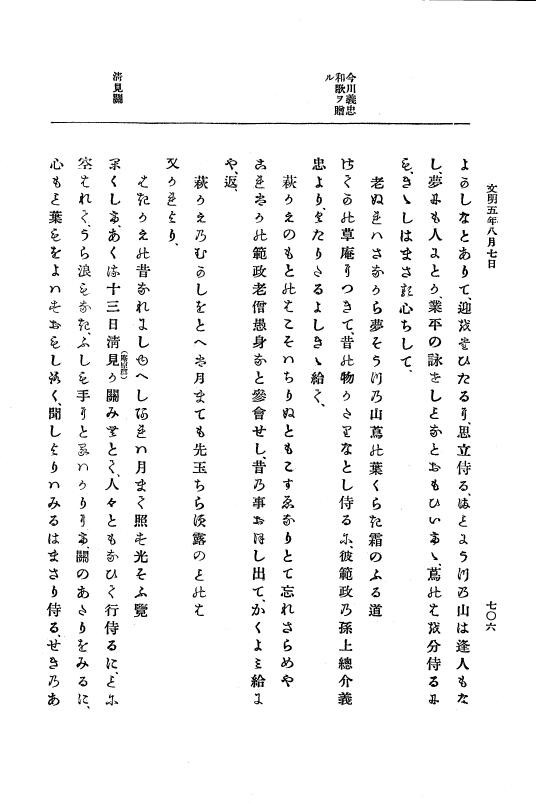 文明五年八月七日
七〇六
今川義忠
和歌ヲ贈
ル
清見關
よしなとありて、迎をたひたるに、思立侍る、うつの山は逢人もな
し、夢にも人よとか、業平の詠をしとなとおもひいてゝ、蔦のした分侍るに
も、きゝしはまさる心ちして、
老ぬれはさなから夢そうつの山蔦の葉くらき霜のふる道
の草庵につきて、昔の物かたりなとし侍るに、彼範政の孫上總介義
忠より、きたりたるよしきゝ給て、
萩かえのもとのちりぬともこすゑなりとて忘れさらめや
これはかの範政老僧愚身なと參會せし、昔の事おほし出て、かくよミ給ふ
や、返、
萩かえのむかしをとへは月まても先玉ちらす露のことのは
又かれより、
ことかえの昔なれましへし月まて照す光そふ覽
くして、あくる十三日清見か關みむとて、人々ともなひて行侍るに、ことに
空はれて、うら浪もなき、ふしも手にとるはかりにて、關のあたりをみるに、
心もこと葉もをよはす、聞しよりいみるはまさり侍る、せきのあ